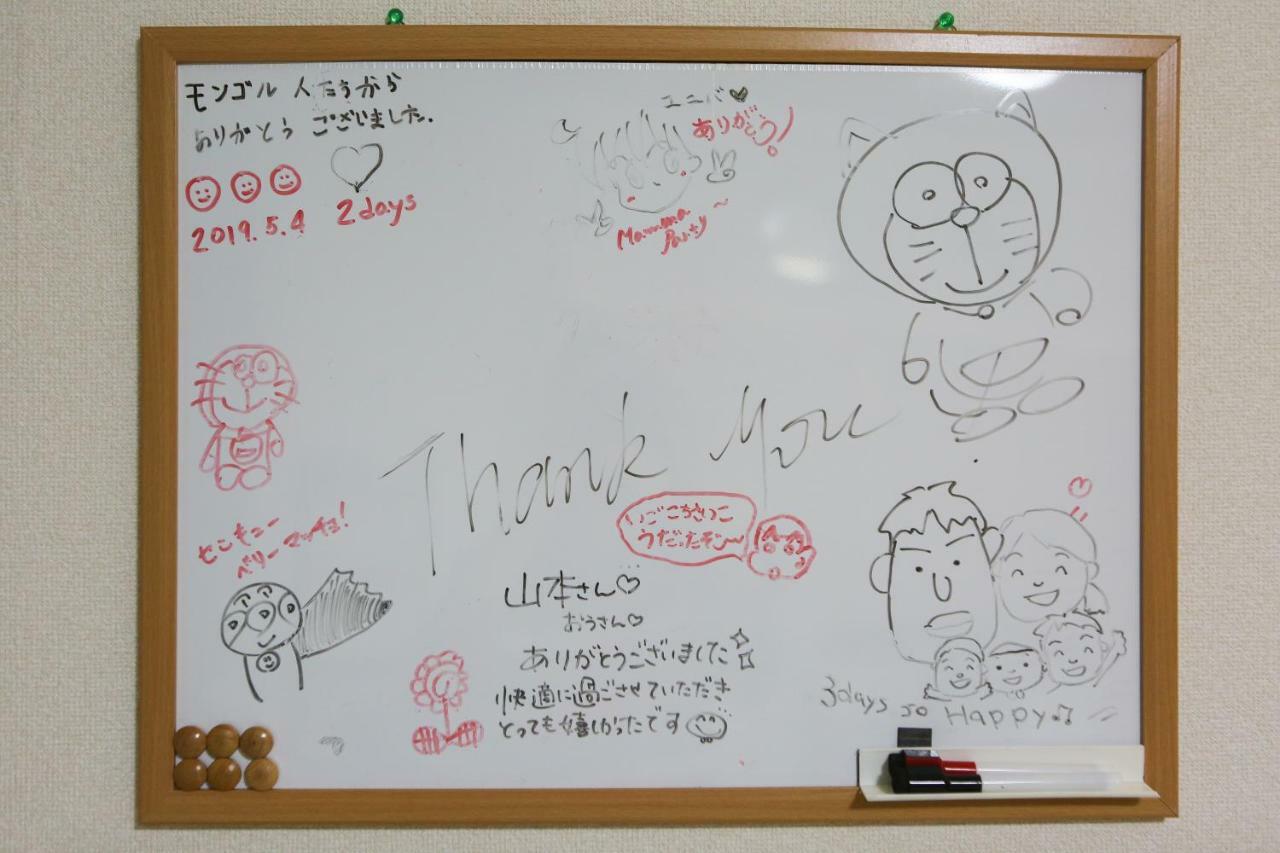 モンゴル 人たちから
ありがとう ございました.
2019.5.4
2days
ユニバ♥
ありがとう!
Mammma
Party ~
せんきゅー
ベリーマッチョ!
Thank You
いごこちさいこ
うだったモン〜
山本さん♡
おうさん♡
ありがとうございました
快適に過ごさせていただき
とっても嬉しかったです
3days so Happy♪